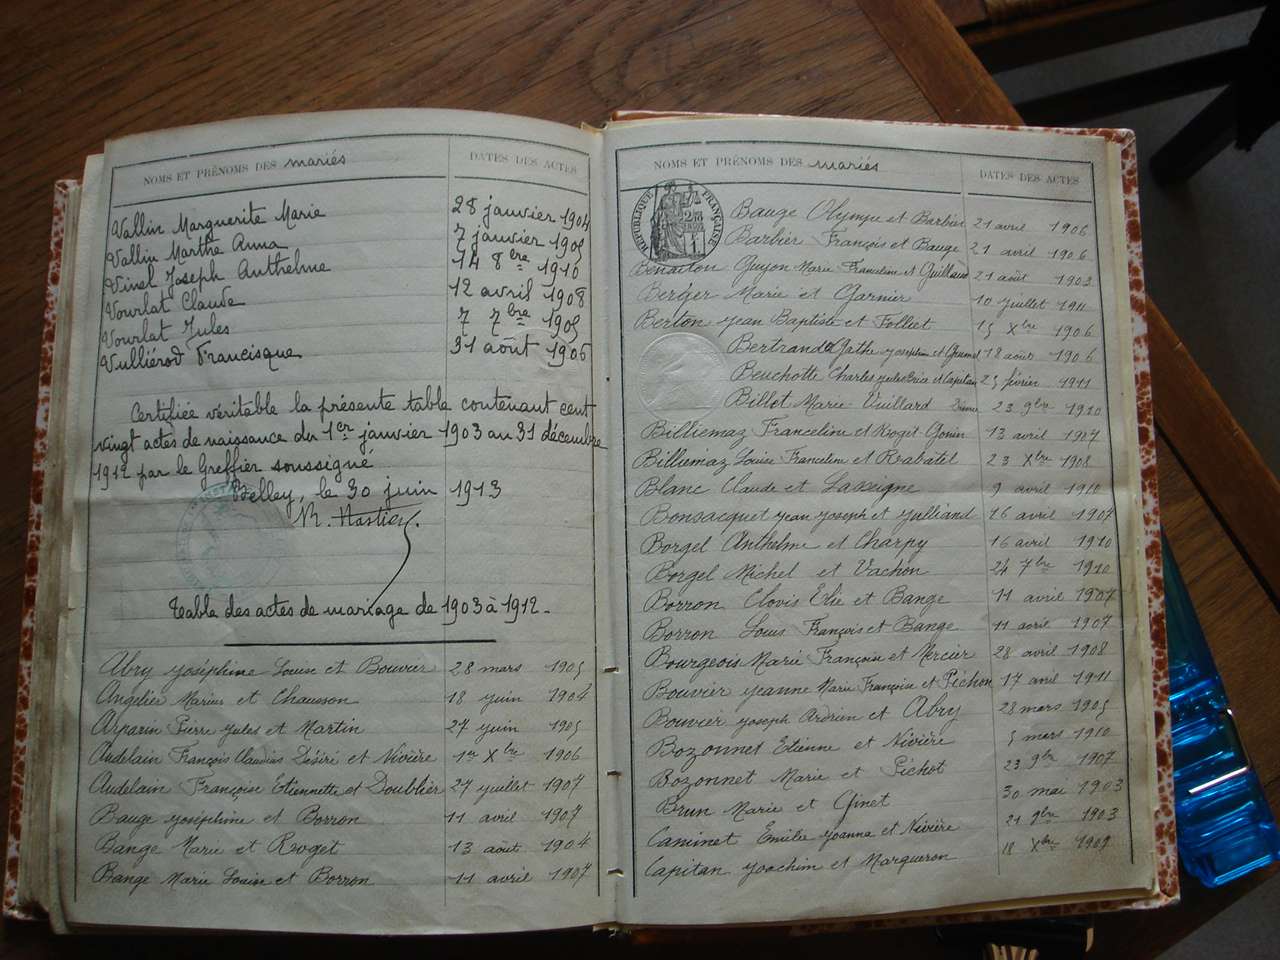 NOMS ET PRÉNOMS DES mariés DATES DES ACTES
Vallin Marguerite Marie 28 janvier 1904
Vallin Marthe Anna 7 janvier 1905
Vinal Joseph Anthelme 14 8bre 1910
Vourlat Claude 12 avril 1908
Vourlat Jules 7 7bre 1905
Vulliérod Francisque 31 août 1906
Certifiée véritable la présente table contenant cent
vingt actes de naissance du 1er janvier 1903 au 31 décembre
1912 par le Greffier soussigné
Belley, le 30 juin 1913
Table des actes de mariage de 1903 à 1912.
Abry Joséphine Louise et Bouvier 28 mars 1905
Angelier Marius et Chausson 18 juin 1904
Arparin Pierre Jules et Martin 27 juin 1905
Audelain François Claudius Désiré et Nivière 1er Xbre 1906
Audelain Françoise Etiennette et Doublier 27 juillet 1907
Bauge Joséphine et Borron 11 avril 1907
Bange Marie et Roget 13 août 1904
Bange Marie Louise et Borron 11 avril 1907
NOMS ET PRÉNOMS DES mariés DATES DES ACTES
RÉPUBLIQUE FRANÇAISE
Bauge Olympe et Barbier 21 avril 1906
Barbier François et Bauge 21 avril 1906
Benaiton Guyon Marie Franceline et Guillaud 21 août 1903
Berger Marie et Garnier 10 juillet 1911
Berton Jean Baptiste et Folliet 15 Xbre 1906
Bertrand Agathe Joséphine et 18 août 1906
Beuchotte Charles Jules et Capitan 25 février 1911
Billet Marie Vuillard 23 9bre 1910
Billiemaz Franceline et Roget Gonin 13 avril 1907
Billiemaz Louise Franceline et Rabatel 23 Xbre 1908
Blanc Claude et Lasseigne 9 avril 1910
Bonsacquet Jean Joseph et Julliand 16 avril 1907
Borgel Anthelme et Charpy 16 avril 1910
Borgel Michel et Vachon 24 7bre 1910
Borron Clovis Elie et Bange 11 avril 1907
Borron Louis François et Bange 11 avril 1907
Bourgeois Marie Françoise et Mercier 28 avril 1908
Bouvier Jeanne Marie Françoise et Pichon 17 avril 1911
Bouvier Joseph Adrien et Abry 28 mars 1905
Bozonnet Etienne et Nivière 5 mars 1910
Bozonnet Marie et Pichot 23 9bre 1907
Brun Marie et Ginet 30 mai 1903
Caminet Emilie Joanna et Nivière 21 9bre 1903
Capitan Joachim et Margueron 18 Xbre 1909